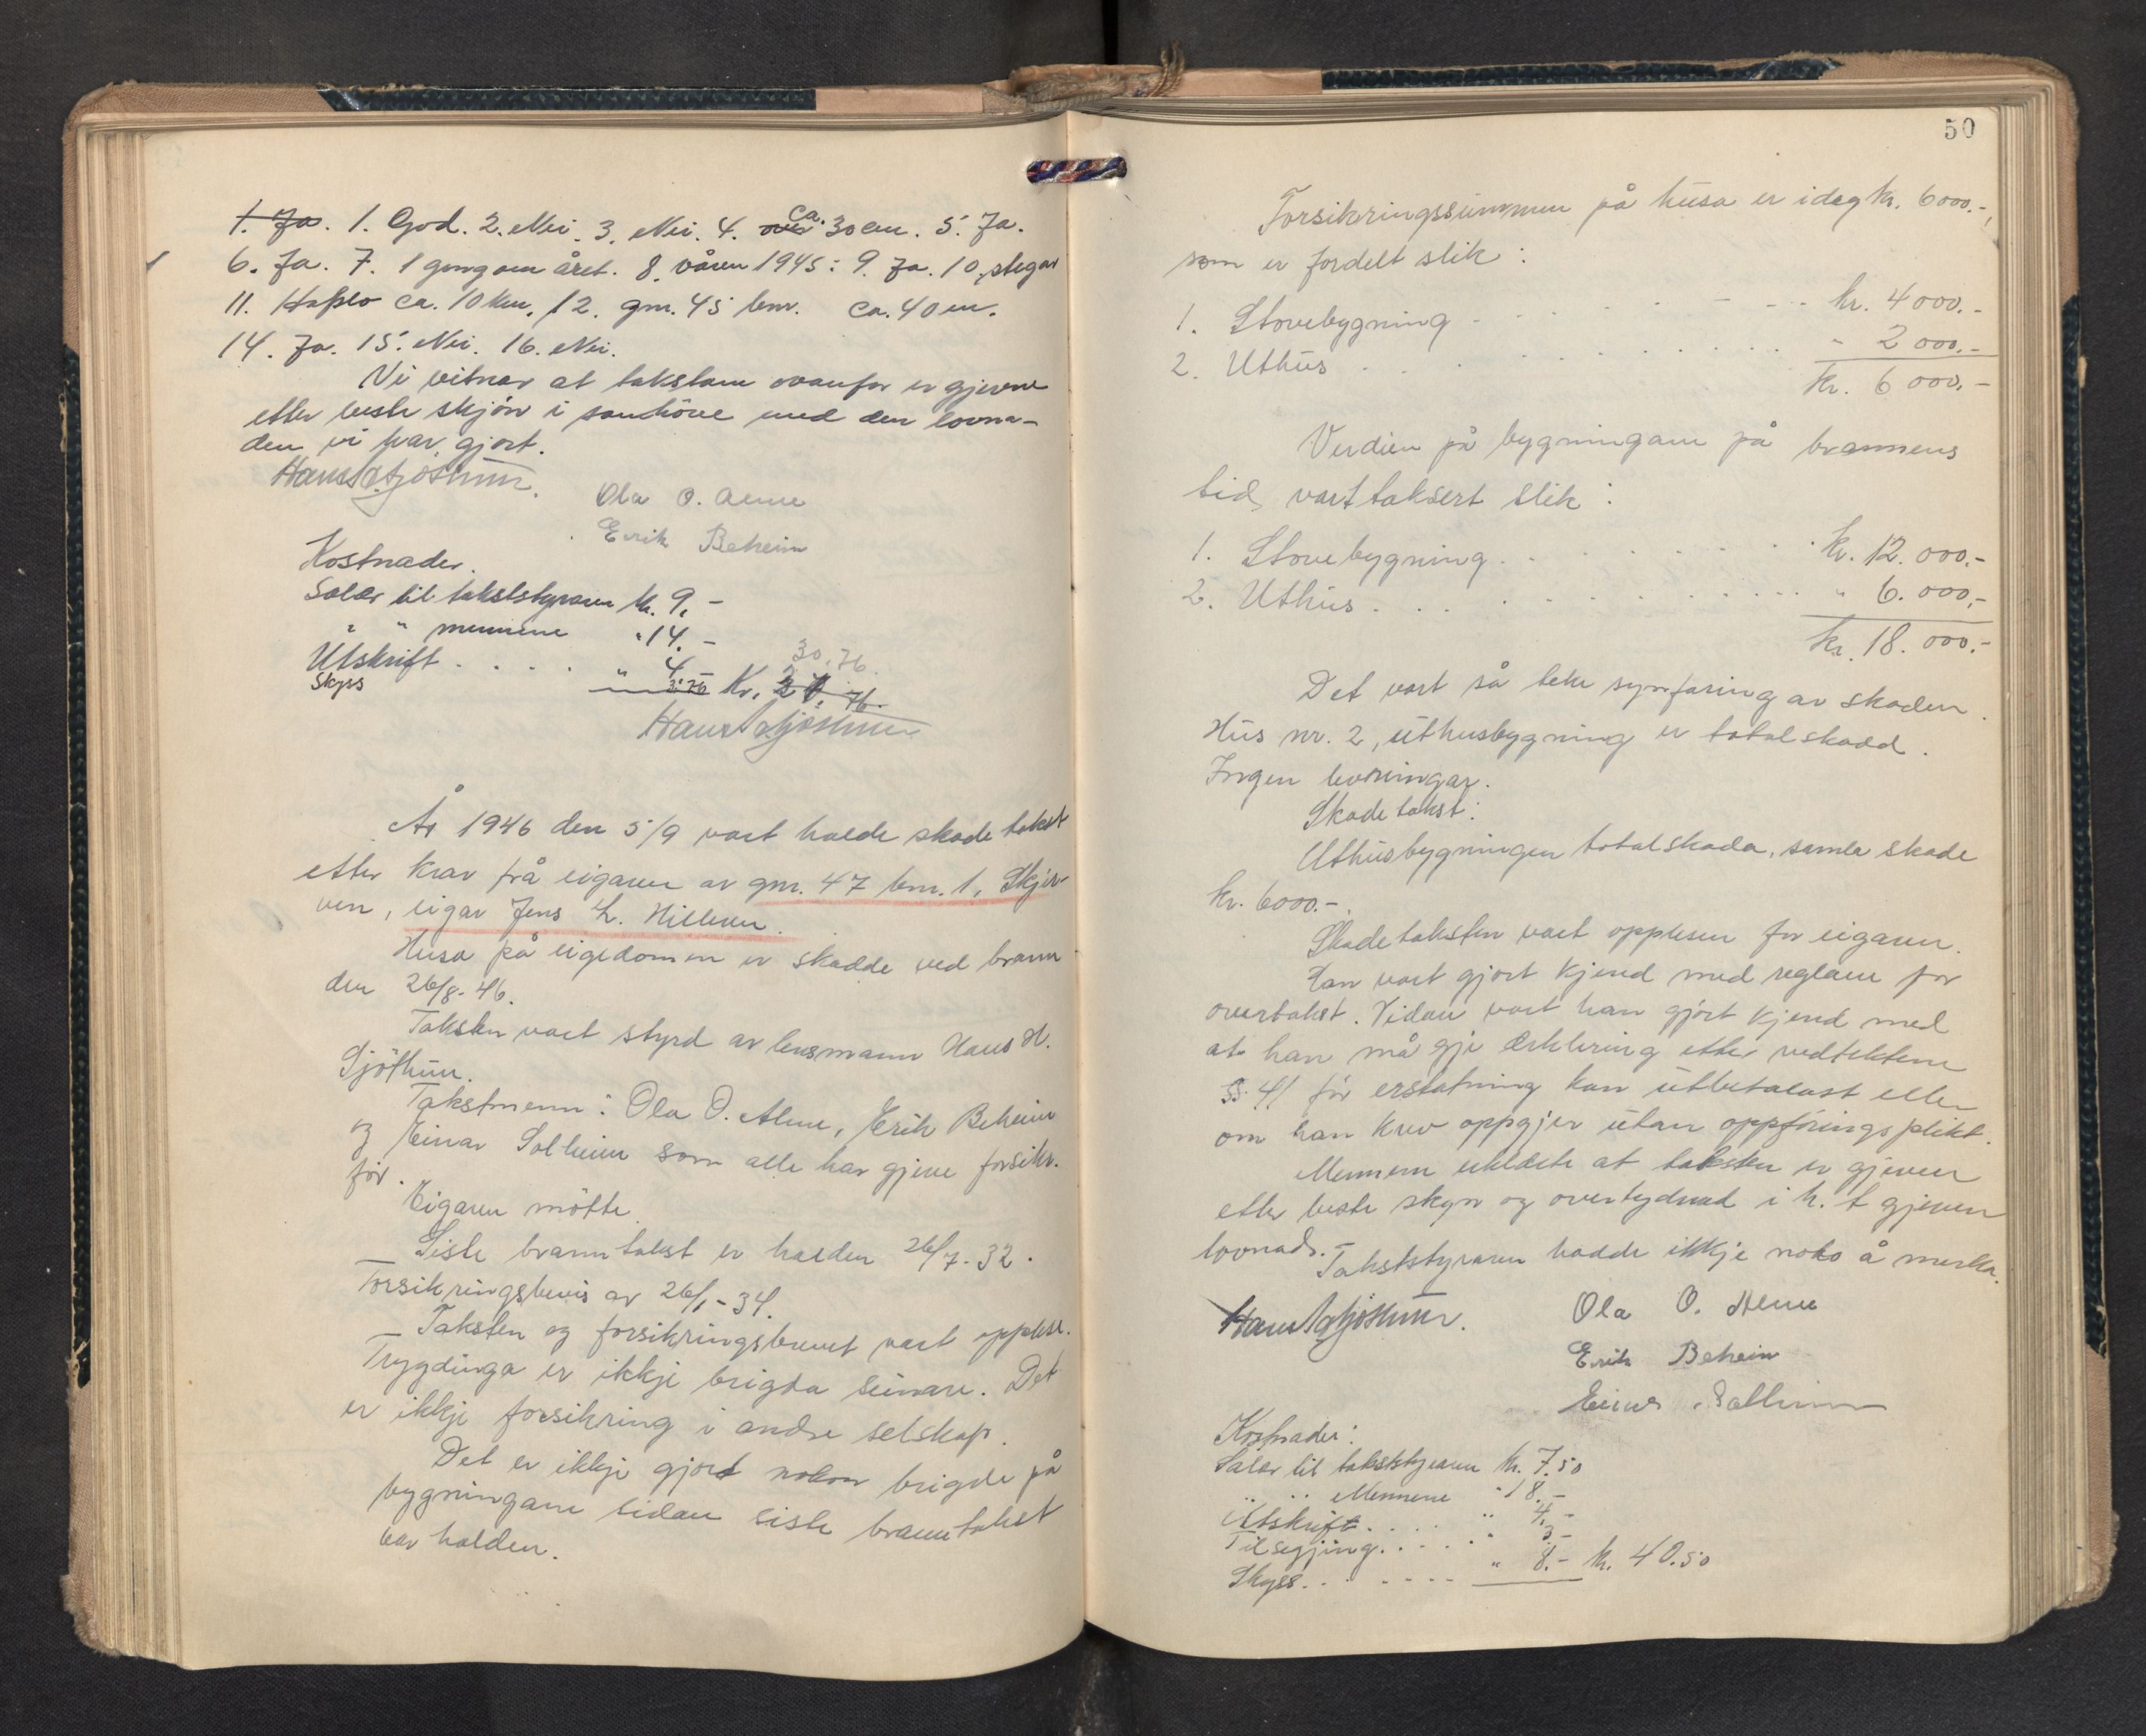 1. Ja. 1. God. 2. Nei. 3. Nei. 4. over ca. 30 cm. 5. Ja.
6. Ja. 7. 1 gong om året. 8. våren 1945: 9. Ja. 10. stegar
11. Hafslo ca. 10 km. 12. gnr. 45 bnr. ca. 40 m.
14. Ja. 15. Nei. 16. Nei.
Vi vitnar at takstane ovanfor er gjevne
etter beste skjön i samhöve med den lovna-
den vi har gjort.
Hans H Sjöthun.
Ola O. Alme
Erik Beheim
Kostnader.
Salær til takststyraren kr. 9.-
" " mennene " 14.-
Utskrift . . . . " 4.-
30.76.
Skyss " 3.76 Kr. 27.76.
Hans H Sjöthun
År 1946 den 5/9 vart halde skadetakst
etter krav frå eigaren av gnr. 47 bnr. 1, Skjer-
ven, eigar Jens L. Hillern.
Husa på eigedomen er skadde ved brann
den 26/8-46.
Taksten vart styrd av lensmann Hans H.
Sjöthun.
Takstmenn: Ola O. Alme, Erik Beheim
og Einar Solheim som alle har gjeve forsikr.
för.
Eigaren mötte.
Siste branntakst er halden 26/7-32.
Forsikringsbevis av 26/1-34.
Taksten og forsikringsbrevet vart opplese.
Trygdinga er ikkje brigda seinare. Det
er ikkje forsikring i andre selskap.
Det er ikkje gjord nokon brigde på
bygningane sidan siste branntakst
var halden.
50
Forsikringssummen på husa er idag kr. 6000.-,
som er fordelt slik:
1. Stovebygning - . . . . - - . . kr. 4000.-
2. Uthus . . . . . . . . . . " 2000.-
kr. 6000.-
Verdien på bygningane på brannens
tid vart taksert slik:
1. Stovebygning . . . . . . . . kr. 12.000.-
2. Uthus . . . . . . . . . . . " 6.000.-
kr. 18.000.-
Det vart så teke synfaring av skaden.
Hus nr. 2, uthusbygning er totalskadd.
Ingen levningar.
Skadetakst:
Uthusbygningen totalskada, samla skade
kr. 6000.-.
Skadetaksten vart opplesen for eigaren.
Han vart gjort kjend med reglane for
overtakst. Vidare vart han gjört kjend med
at han må gje erklæring etter vedtektene
§§ 41 för erstatning kan utbetalast eller
om han krev oppgjer utan oppföringsplikt.
Mennene erklærte at taksten er gjeven
etter beste skyn og overtydnad i h. t gjeven
lovnad.
Takststyraren hadde ikkje noko å merka.
Hans H Sjöthun.
Ola O. Alme
Erik Beheim
Einar Solheim
Kostnader:
Salær til takststyraren kr. 7.50
" " Mennene " 18.-
Utskrift. . . . . " 4.-
Tilsegjing. . . . . " 3.-
Skyss. . . - - - - " 8.- kr. 40.50